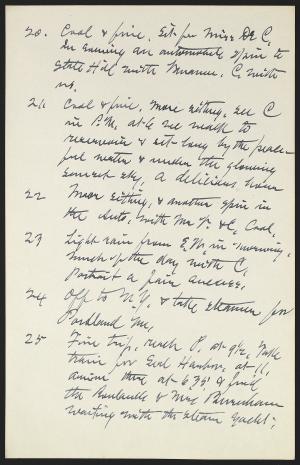 20. Cool & fine. Sit for Miss De C.
In evening an automobile spin to
State Hill with Mr. C. with
us.
21 Cool & fine. More sitting, see C
in P.M. at 6 we walk to
reservoir & sit long by the peace-
ful water & under the glowing
sunset sky. A delicious hour
22 More sitting, & another spin in
the Auto, with Mr & C. Cool.
23 Light rain from S.W. in morning,
much of the day with C.
Portrait a fair success.
24 Off to N.Y. & take steamer for
Portland Me,
25 Fine trip, reach P. at 9½. Take
train for Harbor at 11,
arrive there at 6,35 & find
the & Mrs
waiting with the steam yacht;